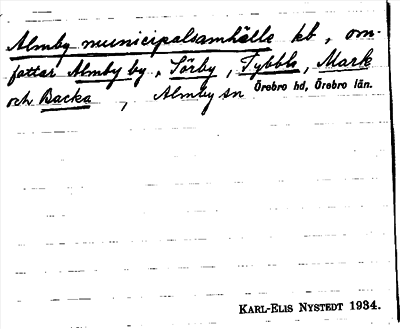 Almby municipalsamhälle kb, om-
fattar Almby by, Sörby, Tybble, Mark
och Backa, Almby sn Örebro hd, Örebro län.
KARL-ELIS NYSTEDT 1934.